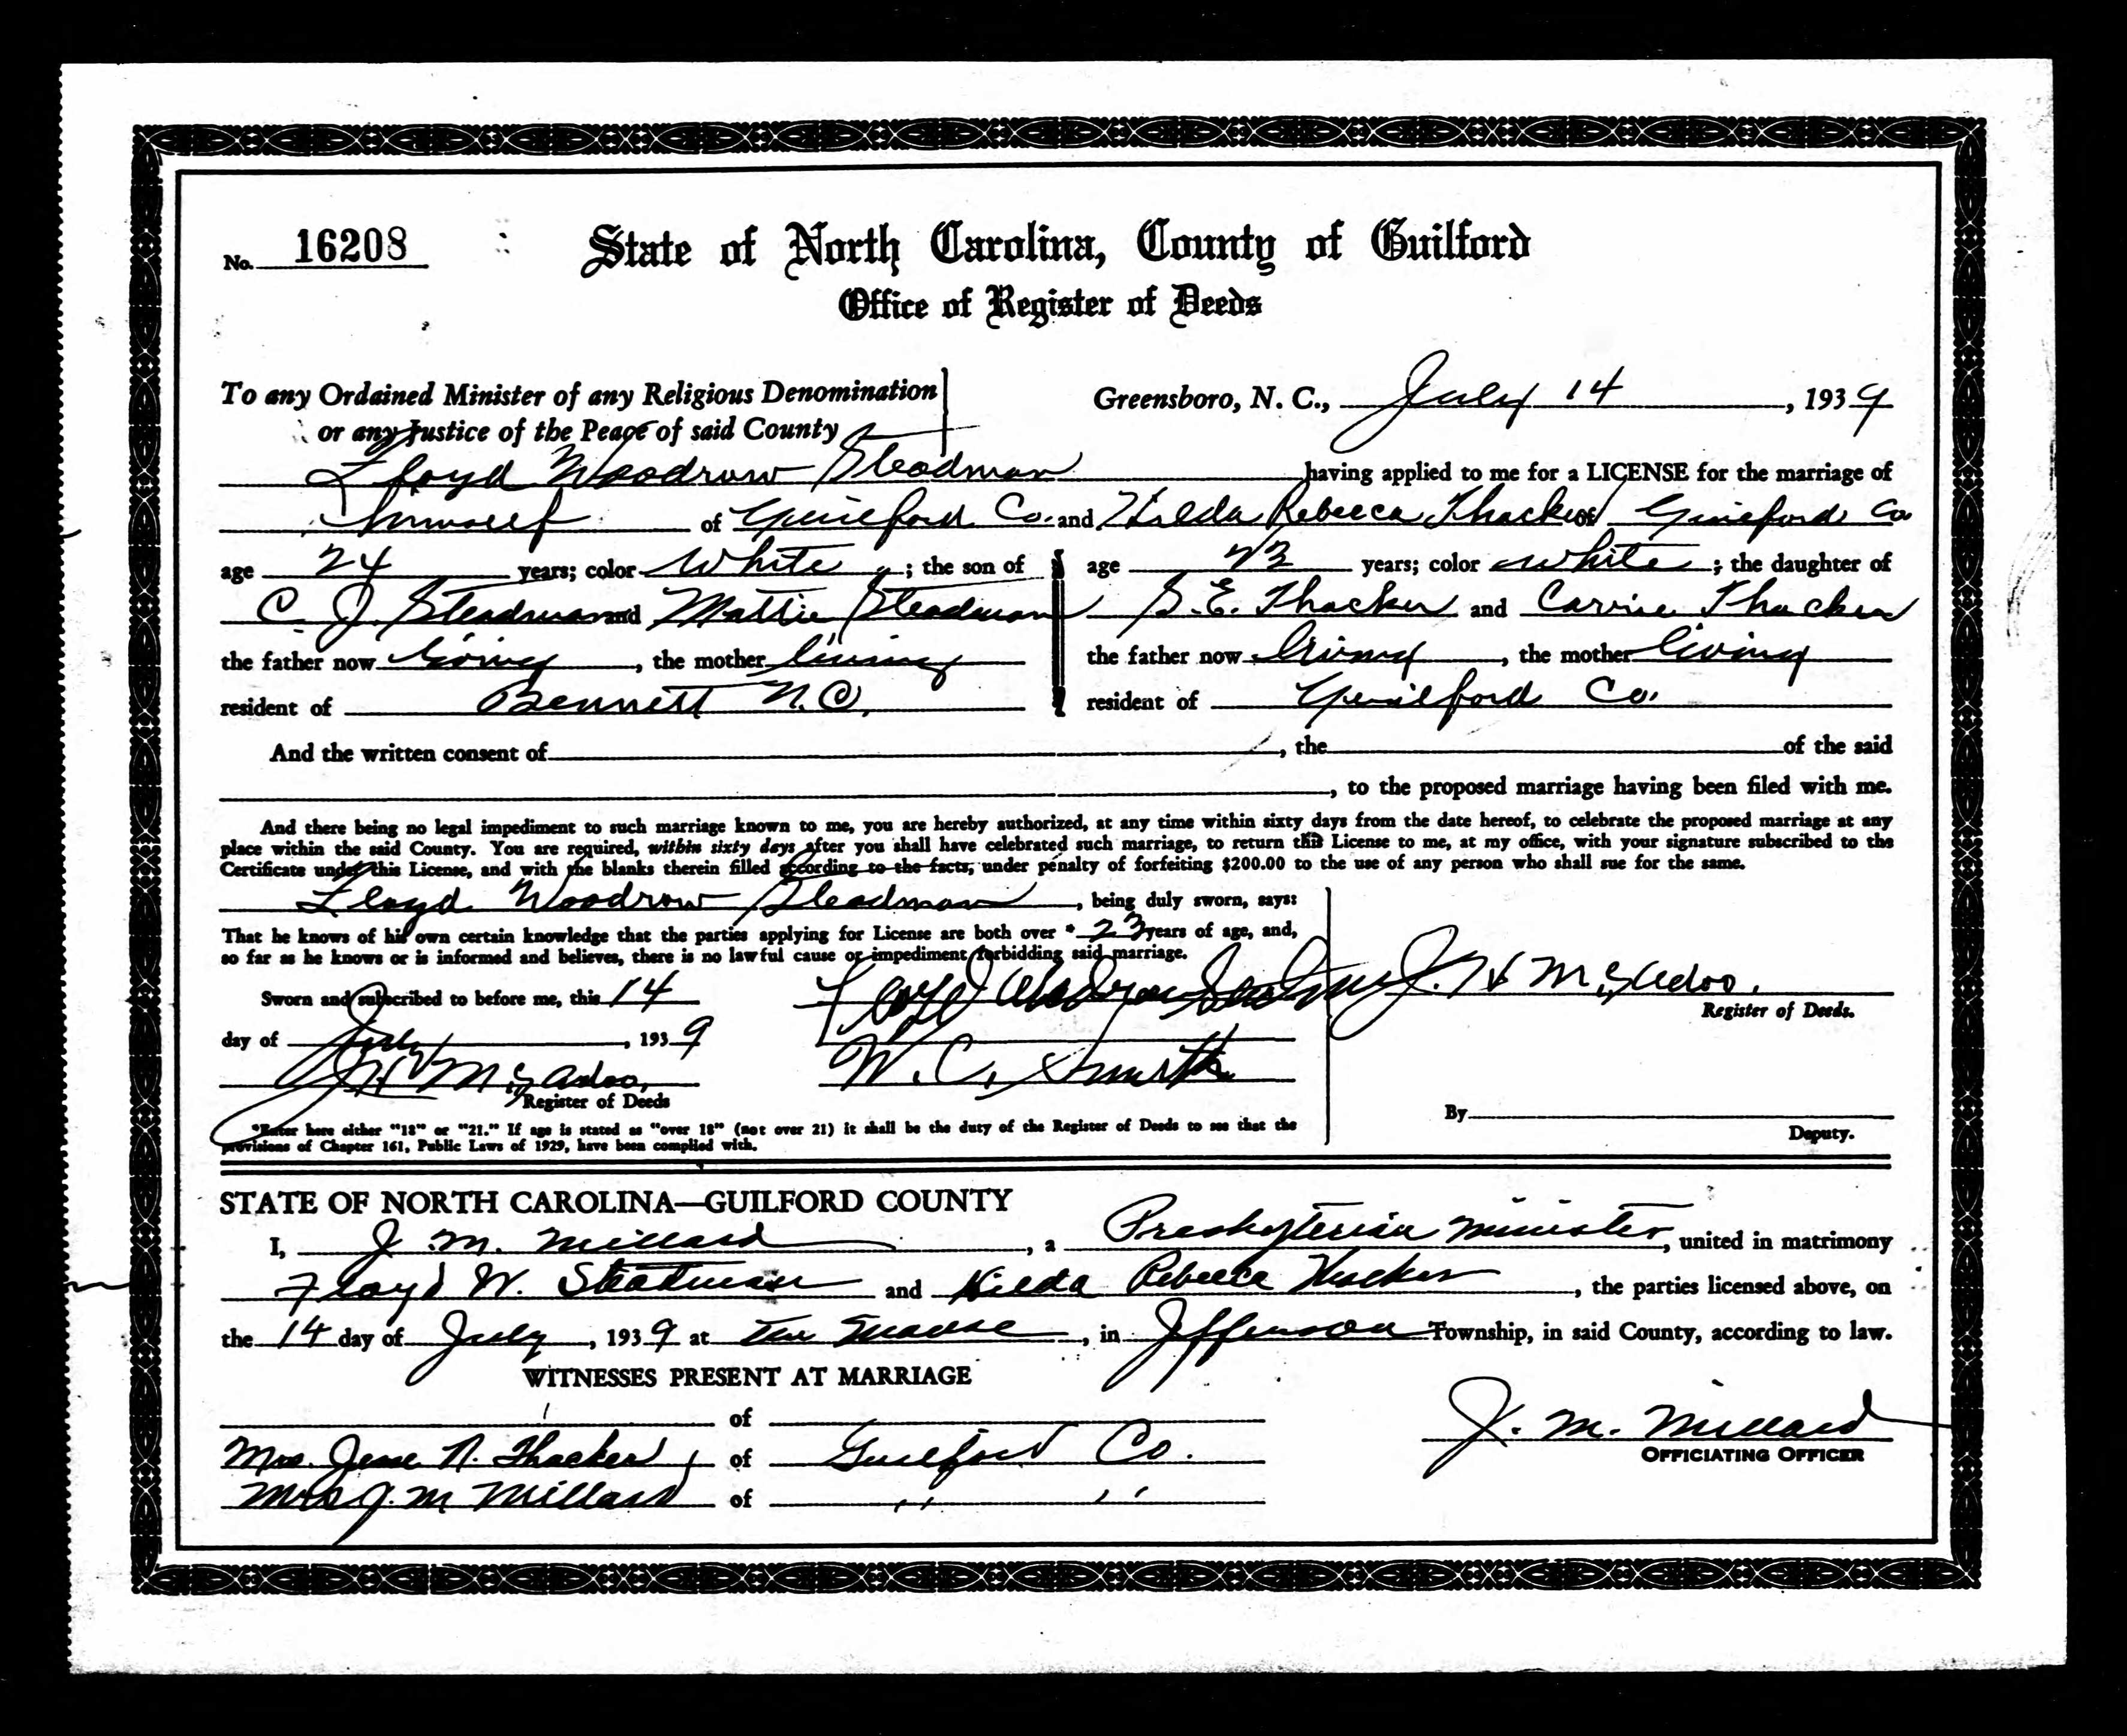 No. 16208
State of North Carolina, County of Guilford
Office of Register of Deeds
To any Ordained Minister of any Religious Denomination
or any Justice of the Peace of said County
Greensboro, N. C., July 14, 1939
Floyd Woodrow Steadman having applied to me for a LICENSE for the marriage of
himself of Guilford Co. and Hilda Rebecca Thacker of Guilford Co
age 24 years; color White; the son of
C. J. Steadman and Mattie Steadman
the father now living, the mother living
resident of Bennett N.C.
age 23 years; color white; the daughter of
S. E. Thacker and Carrie Thacker
the father now living, the mother living
resident of Guilford Co.
And the written consent of , the of the said
, to the proposed marriage having been filed with me.
And there being no legal impediment to such marriage known to me, you are hereby authorized, at any time within sixty days from the date hereof, to celebrate the proposed marriage at any
place within the said County. You are required, within sixty days after you shall have celebrated such marriage, to return this License to me, at my office, with your signature subscribed to the
Certificate under this License, and with the blanks therein filled according to the facts, under penalty of forfeiting $200.00 to the use of any person who shall sue for the same.
Floyd Woodrow Steadman, being duly sworn, says:
That he knows of his own certain knowledge that the parties applying for License are both over * 23 years of age, and,
so far as he knows or is informed and believes, there is no lawful cause or impediment forbidding said marriage.
Sworn and subscribed to before me, this 14
day of July, 1939
J. H. McAdoo,
Register of Deeds
Floyd Woodrow Steadman
W. C. Smith
J. H. McAdoo.
Register of Deeds.
By
Deputy.
*Enter here either "18" or "21." If age is stated as "over 18" (not over 21) it shall be the duty of the Register of Deeds to see that the
provisions of Chapter 161, Public Laws of 1929, have been complied with.
STATE OF NORTH CAROLINA—GUILFORD COUNTY
I, J. M. Millard, a Presbyterian Minister, united in matrimony
Floyd W. Steadman and Hilda Rebecca Thacker, the parties licensed above, on
the 14 day of July, 1939 at The Manse, in Jefferson Township, in said County, according to law.
WITNESSES PRESENT AT MARRIAGE
of
Mrs. Jesse N. Thacker, of Guilford Co.
Mrs J. M Millard of " "
J. M. Millard
OFFICIATING OFFICER